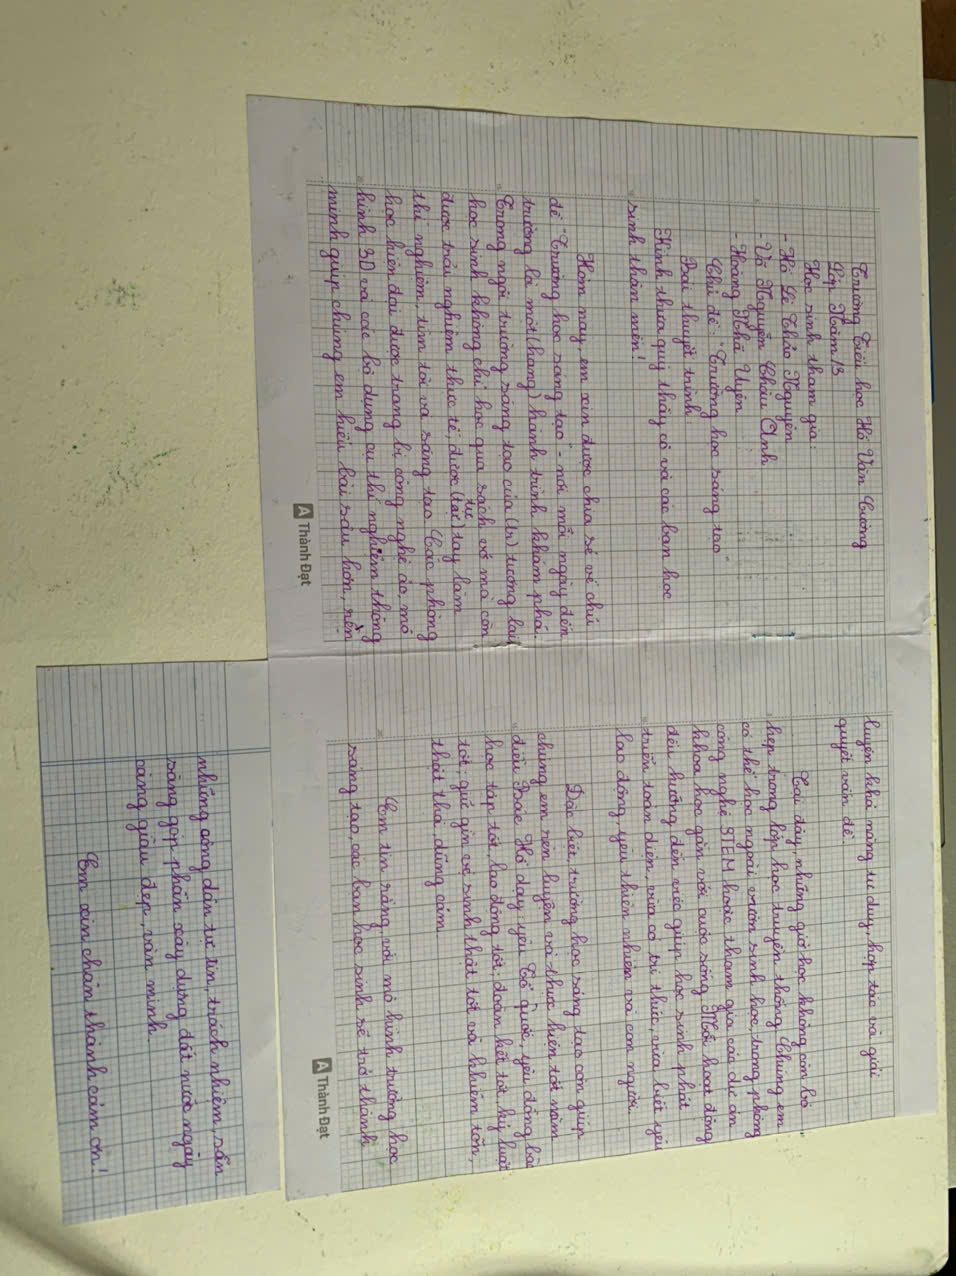 Trường Tiểu học Hồ Văn Cường
Lớp Năm/3
Học sinh tham gia:
- Hồ Lê Thảo Nguyên
- Võ Nguyễn Châu Anh
- Hoàng Nhã Uyên
Chủ đề: "Trường học sáng tạo"
Bài thuyết trình
Kính thưa quý thầy cô và các bạn học
sinh thân mến!
Hôm nay, em xin được chia sẻ về chủ
đề "Trường học sáng tạo" - nơi mỗi ngày đến
trường là một (hang) hành trình khám phá.
Trong ngôi trường sáng tạo của (tr) tương lai,
học sinh không chỉ học qua sách vở mà còn
được trải nghiệm thực tế, được (tại) tự tay làm
thí nghiệm, tìm tòi và sáng tạo. Các phòng
học hiện đại được trang bị công nghệ ảo, mô
hình 3D và các bộ dụng cụ thí nghiệm thông
minh giúp chúng em hiểu bài sâu hơn, rèn
A Thành Đạt
luyện khả năng tư duy, hợp tác và giải
quyết vấn đề.
Tại đây, những giờ học không còn bó
hẹp trong lớp học truyền thống. Chúng em
có thể học ngoài vườn sinh học, trong phòng
công nghệ STEM hoặc tham gia các dự án
khoa học gắn với cuộc sống. Mỗi hoạt động
đều hướng đến việc giúp học sinh phát
triển toàn diện, vừa có tri thức, vừa biết yêu
lao động, yêu thiên nhiên và con người.
Đặc biệt, trường học sáng tạo còn giúp
chúng em rèn luyện và thực hiện tốt năm
điều Bác Hồ dạy: yêu Tổ quốc, yêu đồng bào;
học tập tốt, lao động tốt; đoàn kết tốt, kỷ luật
tốt; giữ gìn vệ sinh thật tốt và khiêm tốn,
thật thà, dũng cảm.
Em tin rằng, với mô hình trường học
sáng tạo, các bạn học sinh sẽ trở thành
A Thành Đạt
những công dân tự tin, trách nhiệm, sẵn
sàng góp phần xây dựng đất nước ngày
càng giàu đẹp, văn minh.
Em xin chân thành cảm ơn!